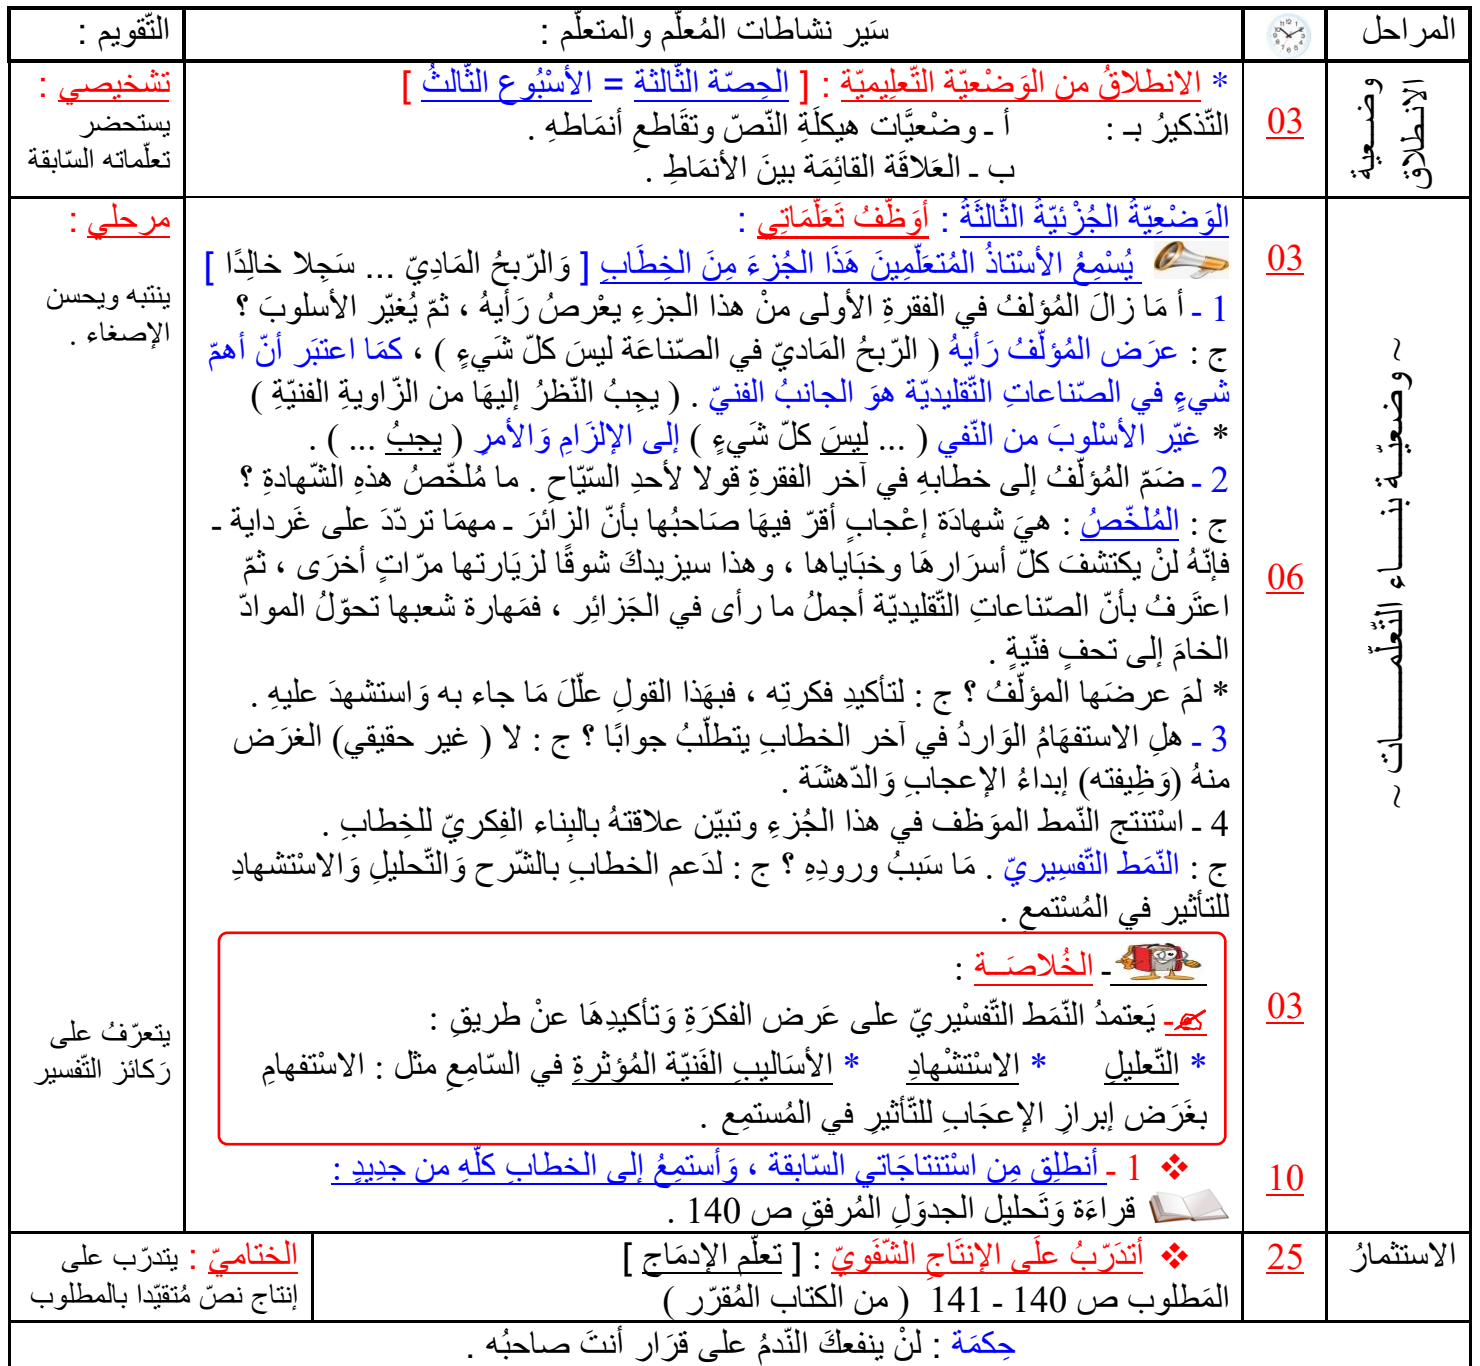 المراحل
سَير نشاطات المُعلّم والمتعلّم :
التّقويم :
وضـــعية الانـطلاق
03
* الانطلاقُ من الوَضْعيّة التّعلِيميّة : [ الحِصّة الثّالثة = الأسْبُوع الثّالثُ ]
التّذكيرُ بـ : أ ـ وضْعيَّات هيكلَةِ النّصّ وتقَاطعِ أنمَاطهِ .
ب ـ العَلاقَة القائِمَة بينَ الأنمَاطِ .
تشخيصي :
يستحضر
تعلّماته السّابقة
~ وضعيّــة بنـــــاء التّعلّمـــــــات ~
03
06
03
10
الوَضْعِيّةُ الجُزْئيّةُ الثّالثَةُ : أوَظّفُ تَعَلّمَاتِي :
يُسْمِعُ الأسْتاذُ المُتعَلّمِينَ هَذَا الجُزءَ مِنَ الخِطَابِ [ وَالرّبحُ المَادِيّ ... سَجِلا خالِدًا ]
1 ـ أ مَا زالَ المُؤلفُ في الفقرةِ الأولى منْ هذا الجزءِ يعْرضُ رَأيهُ ، ثمّ يُغيّر الأسلوبَ ؟
ج : عرَض المُؤلّفُ رَأيهُ ( الرّبحُ المَاديّ في الصّناعَة ليسَ كلّ شَيءٍ ) ، كمَا اعتبَر أنّ أهمّ
شيءٍ في الصّناعاتِ التّقليديّة هوَ الجانبُ الفنيّ . ( يجِبُ النّظرُ إليهَا من الزّاويةِ الفنيّةِ )
* غيّر الأسْلوبَ من النّفي ( ... ليسَ كلّ شَيءٍ ) إلى الإلزَامِ وَالأمرِ ( يجبُ ... ) .
2 ـ ضَمّ المُؤلّفُ إلى خطابهِ في آخر الفقرةِ قولا لأحدِ السّيّاحِ . ما مُلخّصُ هذهِ الشّهادةِ ؟
ج : المُلخّصُ : هيَ شهادَة إعْجابٍ أقرّ فيهَا صَاحبُها بأنّ الزائرَ ـ مهمَا تردّدَ على غَرداية ـ
فإنّهُ لنْ يكتشفَ كلّ أسرَارهَا وخبَاياها ، وهذا سيزيدكَ شوقًا لزيَارتها مرّاتٍ أخرَى ، ثمّ
اعتَرفُ بأنّ الصّناعاتِ التّقليديّة أجملُ ما رأى في الجَزائِر ، فمَهارة شعبها تحوّلُ الموادّ
الخامَ إلى تحفٍ فنّيةٍ .
* لمَ عرضَها المؤلّفُ ؟ ج : لتأكيدِ فكرتِه ، فبهَذا القولِ علّلَ مَا جاء به وَاستشهدَ عليهِ .
3 ـ هلِ الاستفهَامُ الوَاردُ في آخر الخطابِ يتطلّبُ جوابًا ؟ ج : لا ( غير حقيقي) الغرَض
منهُ (وَظِيفته) إبداءُ الإعجابِ وَالدّهشَة .
4 ـ اسْتنتج النّمط الموَظف في هذا الجُزءِ وتبيّن علاقتهُ بالبِناء الفِكريّ للخِطابِ .
ج : النّمَط التّفسِيريّ . مَا سَببُ ورودِهِ ؟ ج : لدَعم الخطابِ بالشّرح وَالتّحليلِ وَالاسْتشهادِ
للتأثير في المُسْتمعِ .
ـ الخُلاصَــة :
ـ يَعتمدُ النّمَط التّفسْيريّ على عَرض الفكرَةِ وَتأكيدِهَا عنْ طريقِ :
* التّعليلِ * الاسْتشْهادِ * الأسَاليبِ الفَنيّة المُؤثرةِ في السّامِعِ مثل : الاسْتفهامِ
بغَرَض إبرازِ الإعجَابِ للتّأثيرِ في المُستمِع .
❖ 1 ـ أنطلِق مِن اسْتنتاجَاتي السّابقة ، وَأستمِعُ إلى الخطابِ كلّهِ من جديدٍ :
قراءَة وَتَحليل الجدوَلِ المُرفقِ ص 140 .
مرحلي :
ينتبه ويحسن
الإصغاء .
يتعرّفُ على
رَكائز التّفسير
الاستثمارُ
25
❖ أتدَرّبُ علَى الإنتَاجِ الشّفَويّ : [ تعلّم الإدمَاج ]
المَطلوب ص 140 ـ 141 ( من الكتاب المُقرّر )
الختاميّ : يتدرّب على
إنتاج نصّ مُتقيّدا بالمطلوب
حِكمَة : لنْ ينفعكَ النّدمُ على قرَار أنتَ صاحبُه .